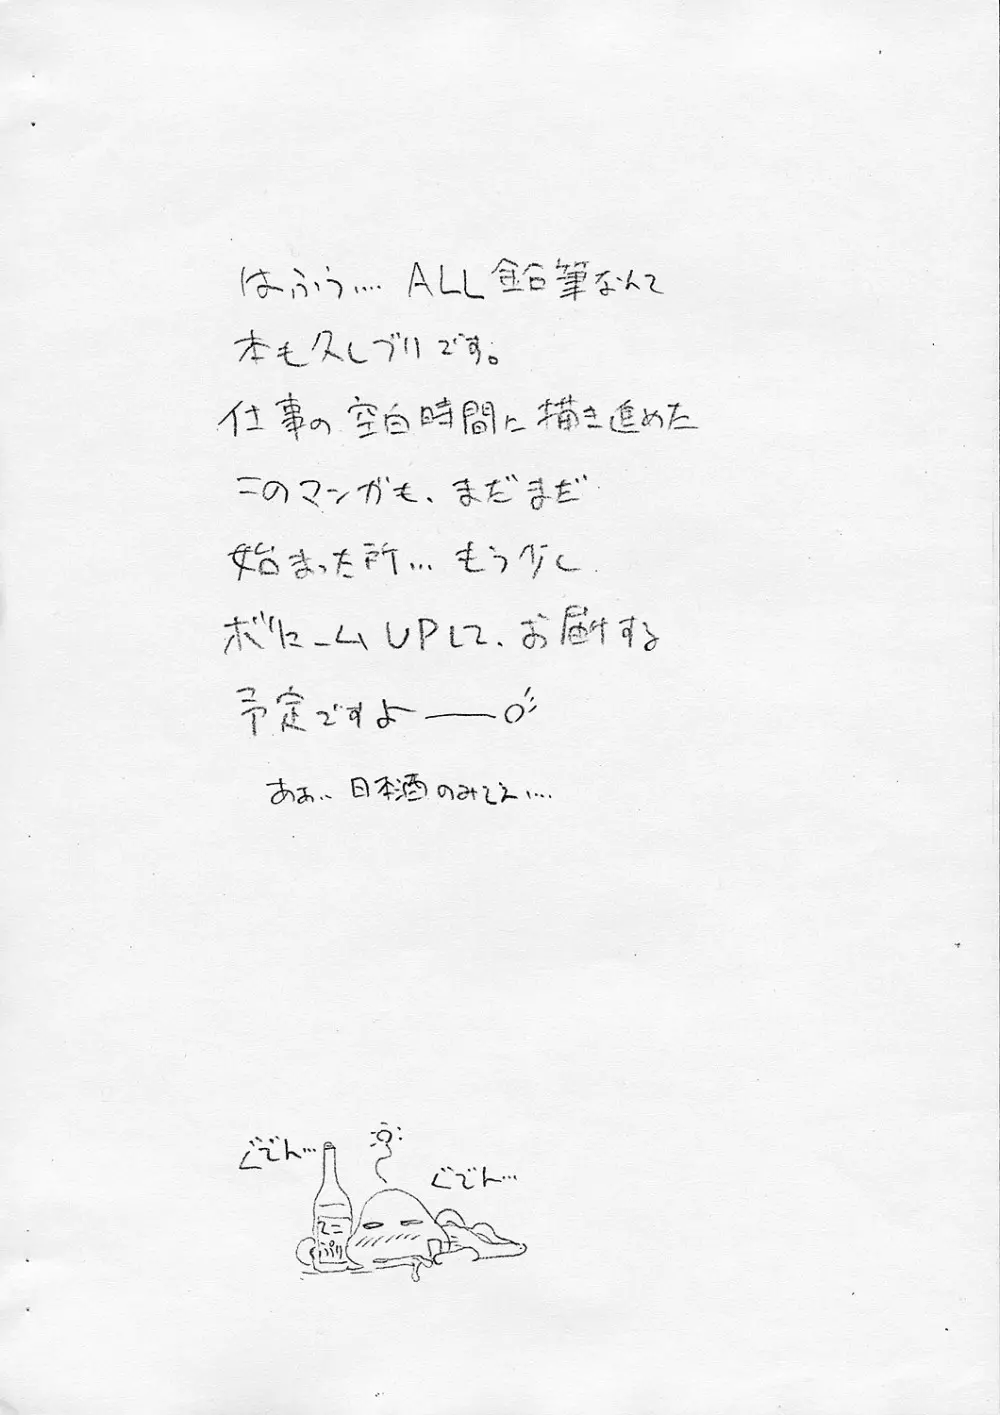 はふぅ…. ALL鉛筆なんて
本も久しブリです。
仕事の空白時間に描き進めた
このマンガも、まだまだ
始まった所… もう少し
ボリュームUPして、お届けする
予定ですよ――○"
あぁ.. 日本酒のみてえ….
ぐでん…
ぐでん…
ぷり